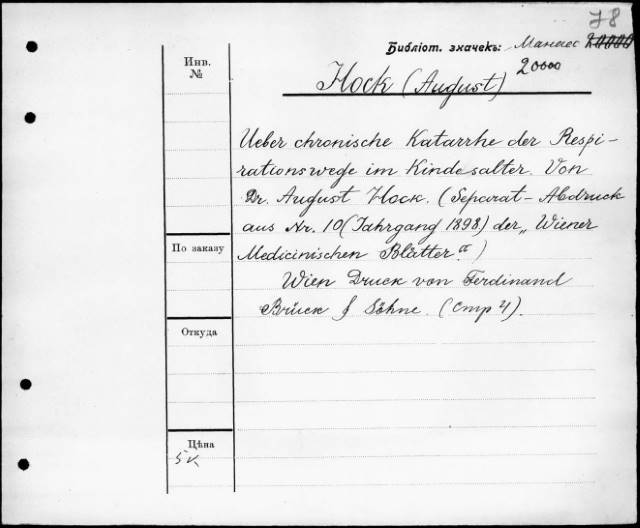 78
Библiот. значекъ: Манасс 20000
20000
Инв.
№
Hock (August)
Ueber chronische Katarrhe der Respi-
rationswege im Kindesalter. Von
Dr. August Hock. (Separat-Abdruck
aus Nr. 10 (Jahrgang 1898) der „Wiener
Medicinischen Blätter“)
По заказу
Wien Druck von Ferdinand
Brück & Söhne. (стр 4).
Откуда
Цѣна
5к